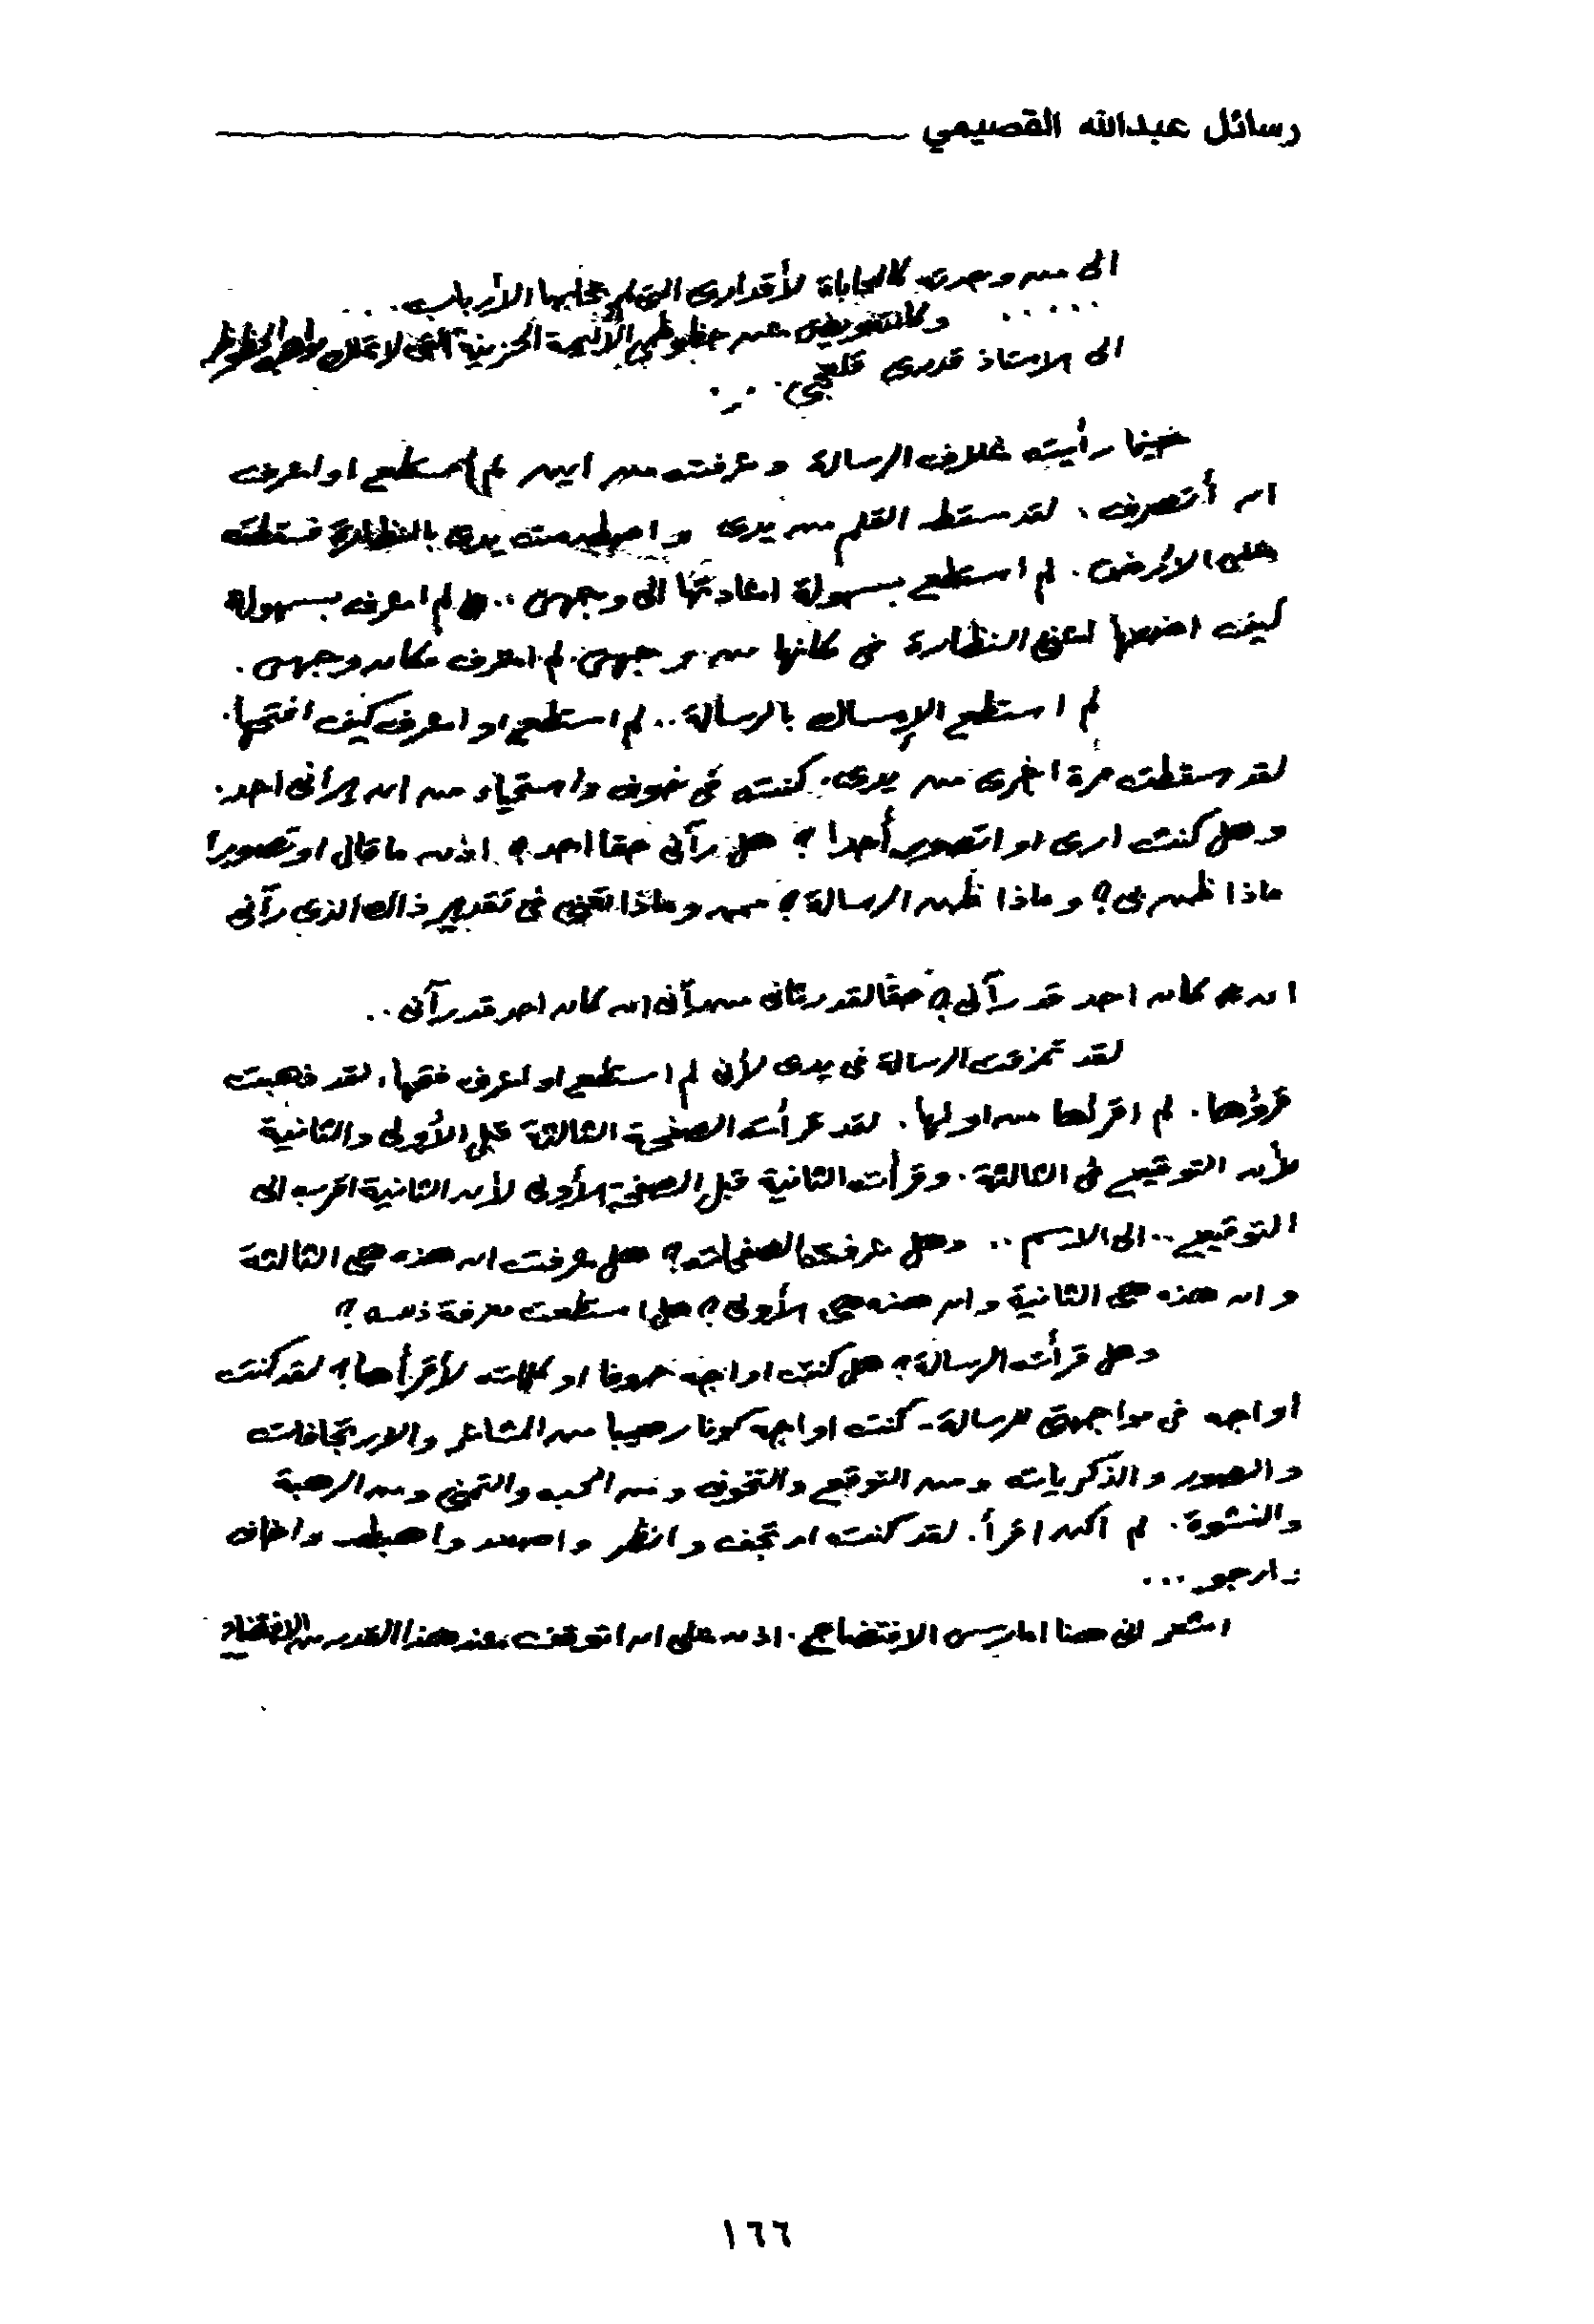 رسائل عبدالله القصيمي
الى من وجدت كالمحاباة لأقدارى التى لم الأرباب . . .
. . . . . وكالتعويض عن حظوظي الأليمة الحزينة التى لا تملك الحظوظ
الى الاستاذ قدرى قلعجى . . .
حينما رأيت غلاف الرسالة وعرفت من اين لم استطع او اعرف
ان أتصرف . لقد سقط القلم من يدى واصطدمت يدى بالنظارة فسقطت
على الارض . لم استطع بسهولة اعادتها الى وجهى .. لم اعرف بسهولة
كيف اضعها اعنى النظارة فى مكانها من وجهى . لم اعرف مكان وجهى .
لم استطع الإمساك بالرسالة .. لم استطع او اعرف كيف افتحها .
لقد سقطت مرة اخرى من يدى . كنت فى خوف واستحياء من ان يرانى احد .
وهل كنت ارى او اتصور أحدا ؟ هل رآنى حقا احد ؟ اذن ما قال او تصور
ماذا ظهر بى ؟ وماذا ظهر الرسالة ؟ من وماذا تعنى فى تقدير ذاك الذى رآنى
ان كان احد قد رآنى ؟ حقا لقد رثانى من رآنى ان كان احد قد رآنى ..
لقد تمزقت الرسالة فى يدى لأنى لم استطع او اعرف فتحها . لقد ذهبت
قرؤها . لم اقرأها من اولها . لقد قرأت الصفحة الثالثة قبل الأولى والثانية
لأن التوقيع فى الثالثة . وقرأت الثانية قبل الصفحة الأولى لأن الثانية اقرب الى
التوقيع .. الى الاسم .. وهل عرفت الصفحات ؟ هل عرفت ان هذه هى الثالثة
وان هذه هى الثانية وان هذه هى الأولى ؟ هل استطعت معرفة ذلك ؟
وهل قرأت الرسالة ؟ هل كنت اواجه حروفا او كلمات لأقرأها ؟ لقد كنت
أواجه فى مواجهتى للرسالة - كنت اواجه كونا رهيبا من المشاعر والارتجافات
والصور والذكريات ومن التوقع والتخوف ومن الحب والتمنى ومن الرهبة
والنشوة . لم اكن اقرأ . لقد كنت ارتجف وانظر واصعد واهبط واخاف
وارجو ...
اشعر انى هنا امارس الافتضاح . اذن على ان اتوقف عند هذا القدر من الافتضاح
١٦٦